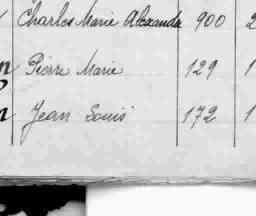 Charles Marie Alexandre 900 2
Pierre Marie 129 1
Jean Louis 172 1